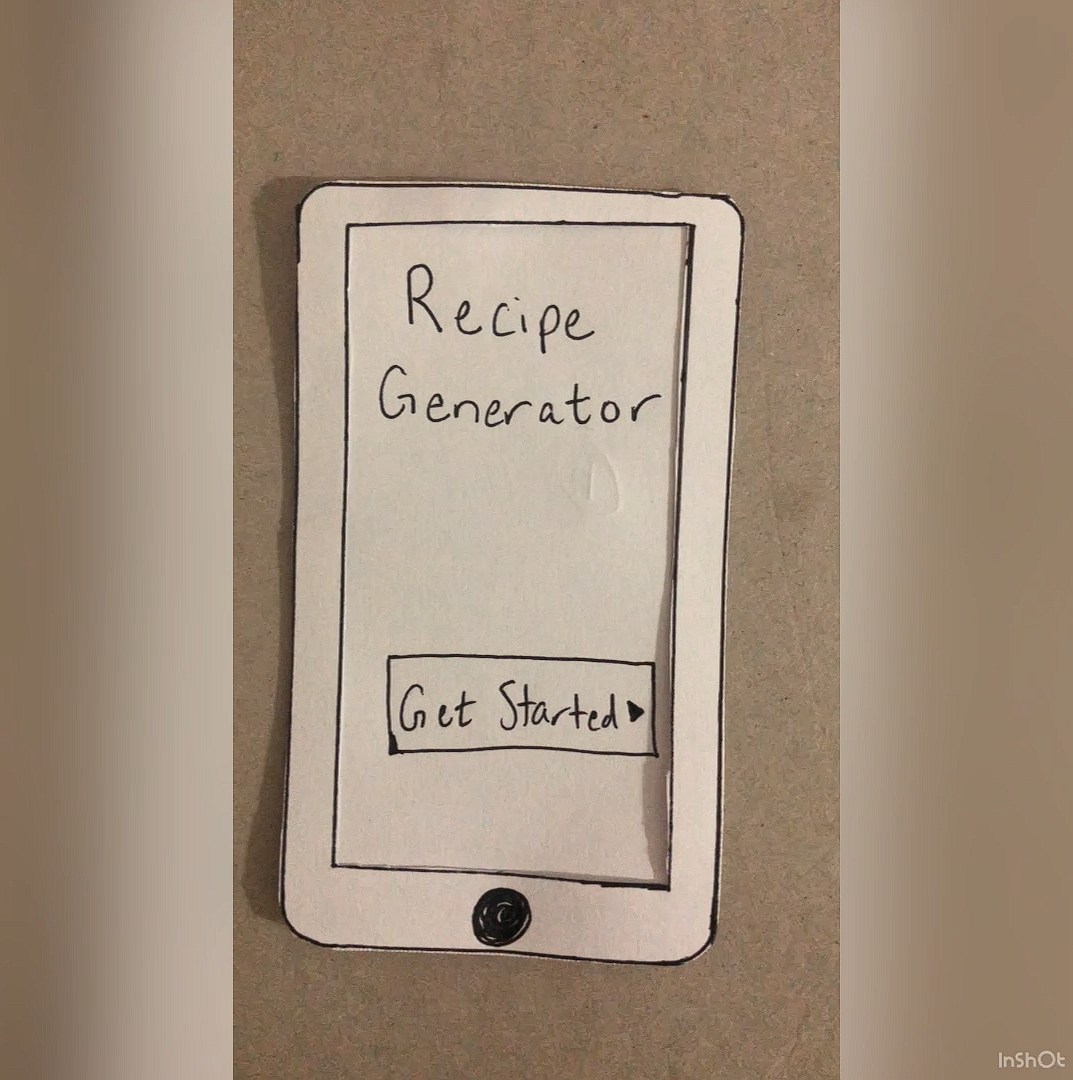 Recipe
Generator
Get Started
InShOt